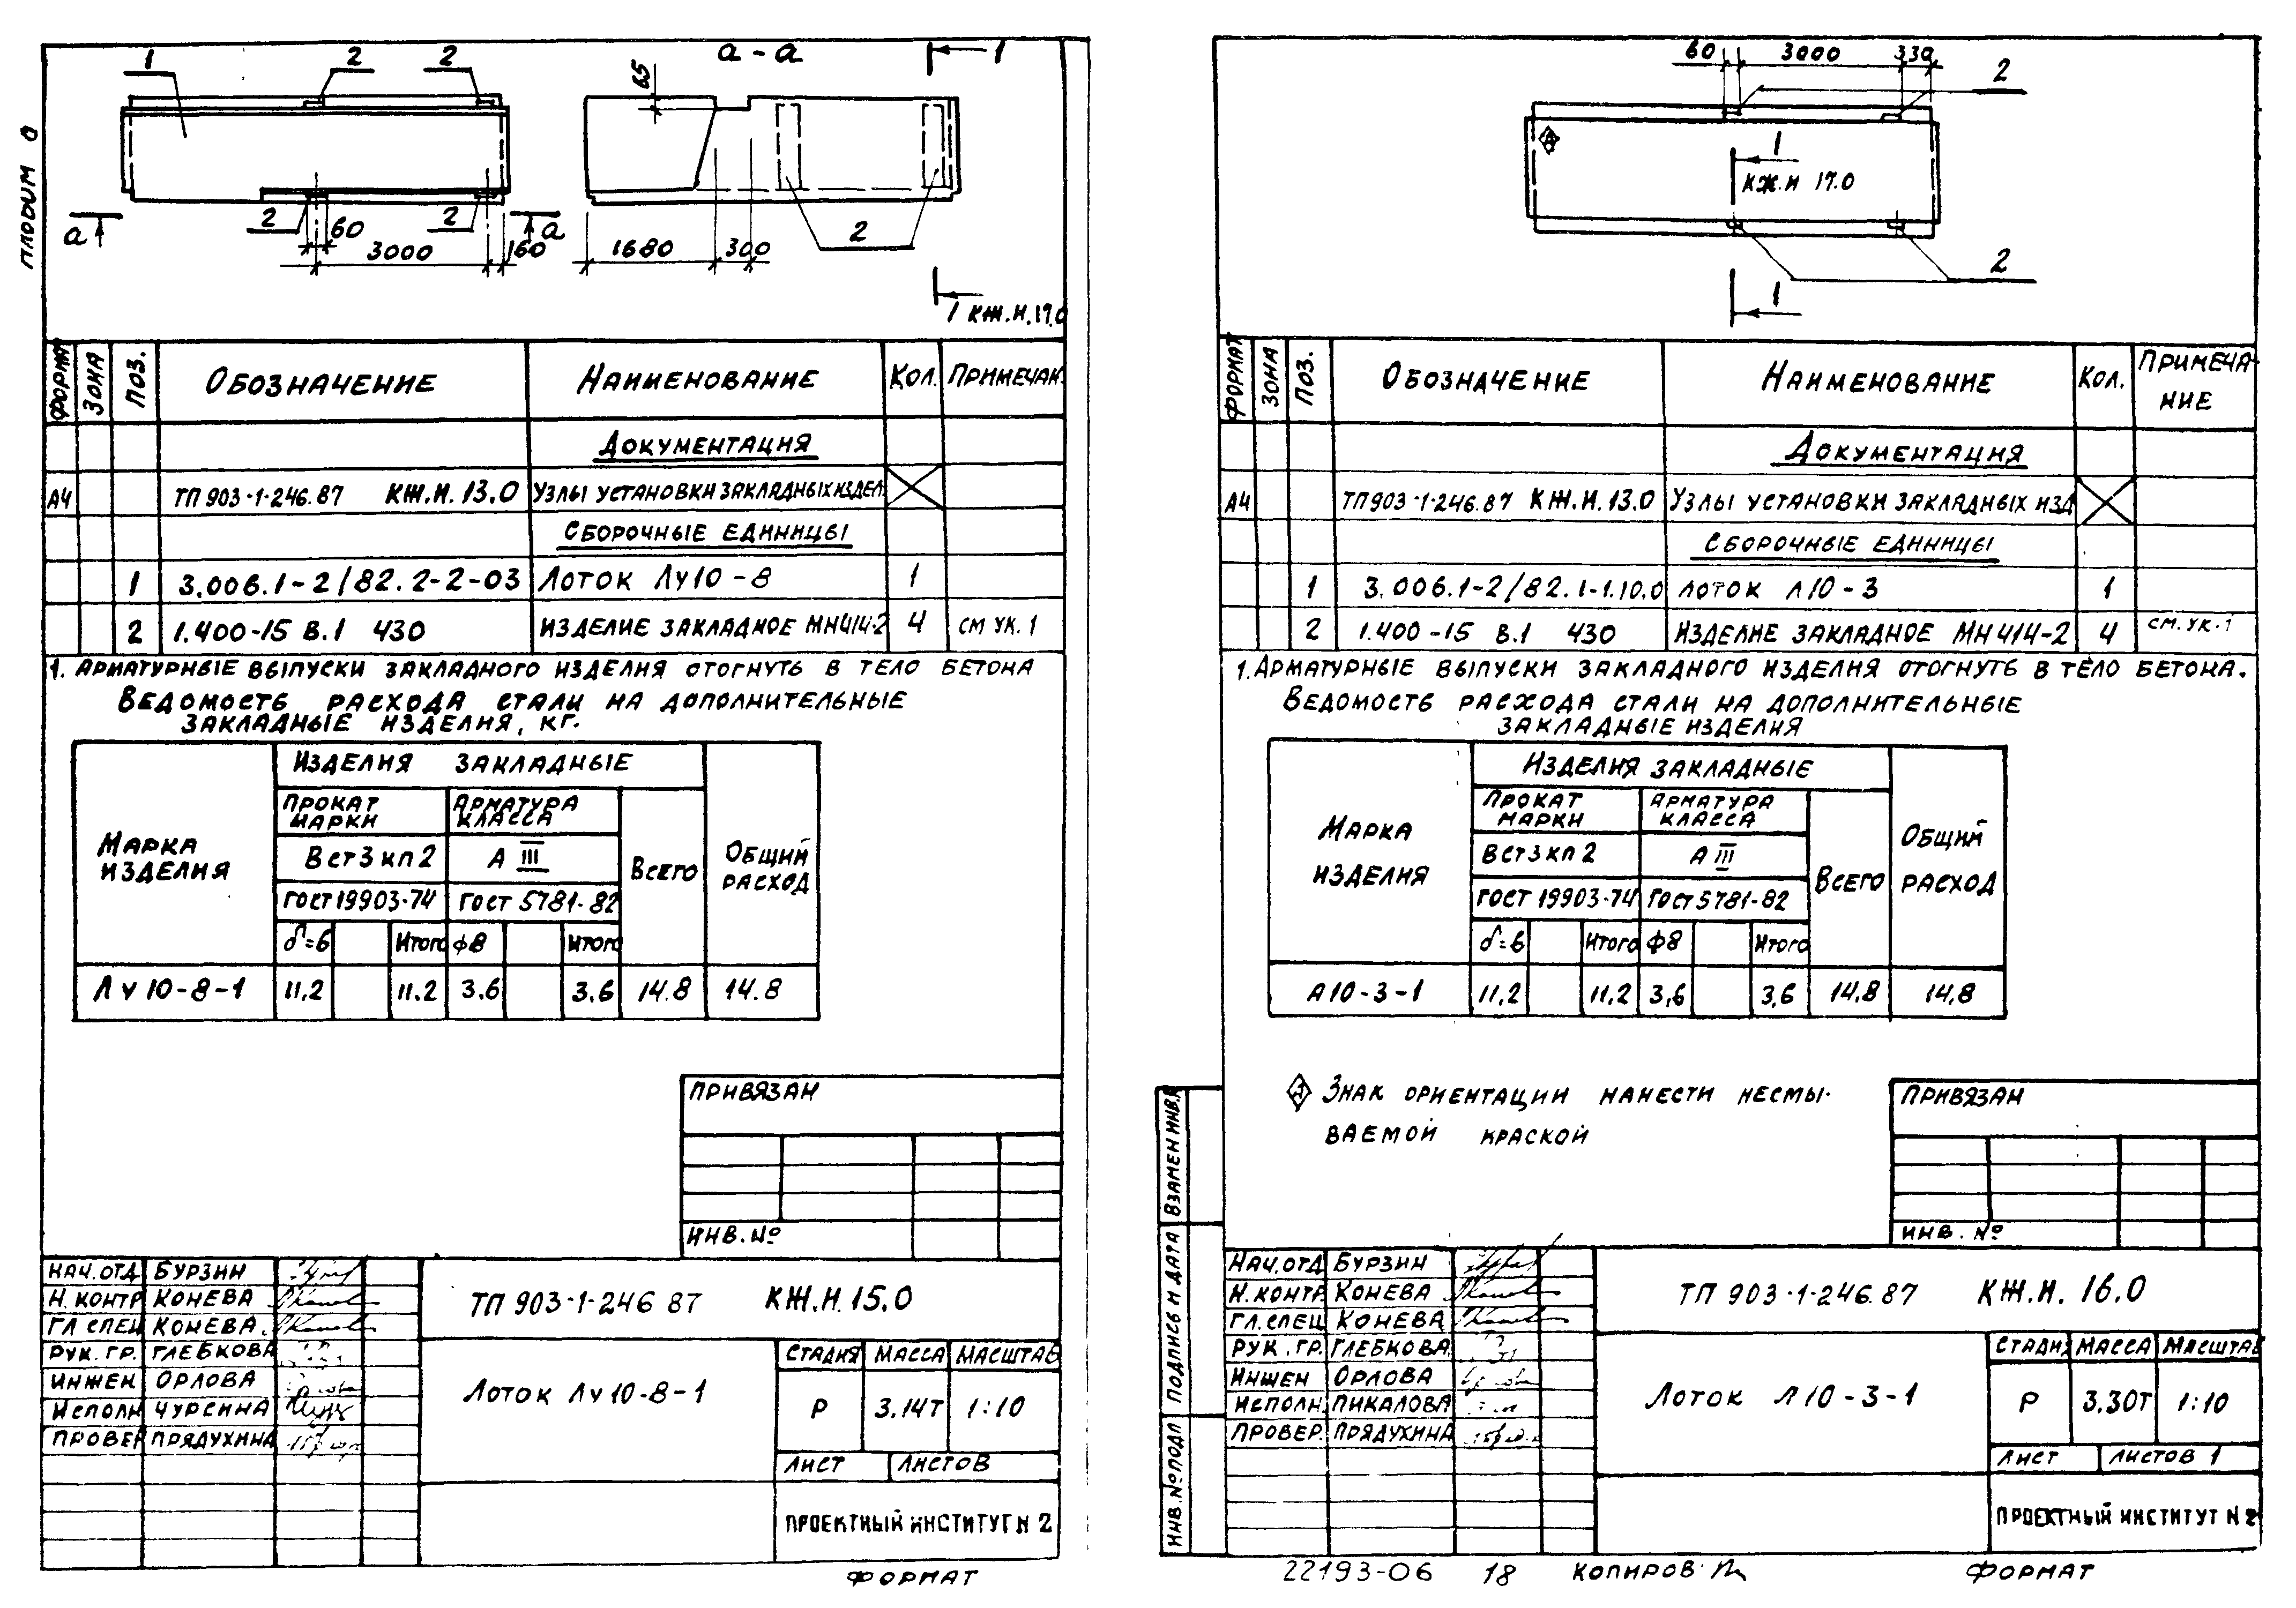 1 2 2 а - а 1
65
2 2 2
а а
60 3000 160 1680 300
1 КЖ.И.17.0
ФОРМАТ ЗОНА ПОЗ. ОБОЗНАЧЕНИЕ НАИМЕНОВАНИЕ КОЛ. ПРИМЕЧАН.
ДОКУМЕНТАЦИЯ
А4 ТП 903-1-246.87 КЖ.И.13.0 УЗЛЫ УСТАНОВКИ ЗАКЛАДНЫХ ИЗДЕЛ.
СБОРОЧНЫЕ ЕДИНИЦЫ
1 3.006.1-2/82.2-2-03 ЛОТОК ЛУ10-8 1
2 1.400-15 В.1 430 ИЗДЕЛИЕ ЗАКЛАДНОЕ МН414-2 4 СМ УК.1
1. АРМАТУРНЫЕ ВЫПУСКИ ЗАКЛАДНОГО ИЗДЕЛИЯ ОТОГНУТЬ В ТЕЛО БЕТОНА
ВЕДОМОСТЬ РАСХОДА СТАЛИ НА ДОПОЛНИТЕЛЬНЫЕ
ЗАКЛАДНЫЕ ИЗДЕЛИЯ, КГ.
МАРКА ИЗДЕЛИЯ
ИЗДЕЛИЯ ЗАКЛАДНЫЕ
ПРОКАТ МАРКИ АРМАТУРА КЛАССА
Вст3кп2 А III ВСЕГО ОБЩИЙ РАСХОД
ГОСТ 19903-74 ГОСТ 5781-82
δ=6 ИТОГО ф8 ИТОГО
ЛУ10-8-1 11,2 11.2 3.6 3.6 14.8 14.8
ПРИВЯЗАН
ИНВ.№
НАЧ.ОТД БУРЗИН
Н.КОНТР КОНЕВА
ГЛ СПЕЦ КОНЕВА
РУК.ГР. ГЛЕБКОВА
ИНЖЕН ОРЛОВА
ИСПОЛН ЧУРСИНА
ПРОВЕР ПРЯДУХИНА
ТП 903-1-246 87 КЖ.И.15.0
ЛОТОК ЛУ10-8-1
СТАДИЯ МАССА МАСШТАБ
Р 3.14Т 1:10
ЛИСТ ЛИСТОВ
ПРОЕКТНЫЙ ИНСТИТУТ N 2
ФОРМАТ
60 3000 330
2
1
КЖ.И 17.0
2
1
ФОРМАТ ЗОНА ПОЗ. ОБОЗНАЧЕНИЕ НАИМЕНОВАНИЕ КОЛ. ПРИМЕЧА-
НИЕ
ДОКУМЕНТАЦИЯ
А4 ТП903-1-246.87 КЖ.И.13.0 УЗЛЫ УСТАНОВКИ ЗАКЛАДНЫХ ИЗД
СБОРОЧНЫЕ ЕДИНИЦЫ
1 3.006.1-2/82.1-1.10.0 ЛОТОК Л10-3 1
2 1.400-15 В.1 430 ИЗДЕЛИЕ ЗАКЛАДНОЕ МН414-2 4 СМ.УК.1
1. АРМАТУРНЫЕ ВЫПУСКИ ЗАКЛАДНОГО ИЗДЕЛИЯ ОТОГНУТЬ В ТЕЛО БЕТОНА.
ВЕДОМОСТЬ РАСХОДА СТАЛИ НА ДОПОЛНИТЕЛЬНЫЕ
ЗАКЛАДНЫЕ ИЗДЕЛИЯ
МАРКА ИЗДЕЛИЯ
ИЗДЕЛИЯ ЗАКЛАДНЫЕ
ПРОКАТ МАРКИ АРМАТУРА КЛАССА
Вст3кп2 А III ВСЕГО ОБЩИЙ РАСХОД
ГОСТ 19903-74 ГОСТ 5781-82
δ=6 ИТОГО ф8 ИТОГО
Л10-3-1 11,2 11,2 3,6 3,6 14,8 14,8
ЗНАК ОРИЕНТАЦИИ НАНЕСТИ НЕСМЫ-
ВАЕМОЙ КРАСКОЙ
ПРИВЯЗАН
ИНВ. №
ВЗАМЕН ИНВ.
ПОДПИСЬ И ДАТА
ИНВ.№ПОДЛ
НАЧ.ОТД БУРЗИН
Н.КОНТР. КОНЕВА
ГЛ.СПЕЦ КОНЕВА
РУК.ГР. ГЛЕБКОВА
ИНЖЕН ОРЛОВА
ИСПОЛН. ПИКАЛОВА
ПРОВЕР. ПРЯДУХИНА
ТП 903-1-246.87 КЖ.И. 16.0
ЛОТОК Л10-3-1
СТАДИЯ МАССА МАСШТАБ
Р 3,30Т 1:10
ЛИСТ ЛИСТОВ 1
ПРОЕКТНЫЙ ИНСТИТУТ N 2
22193-06 18 КОПИРОВ. ФОРМАТ